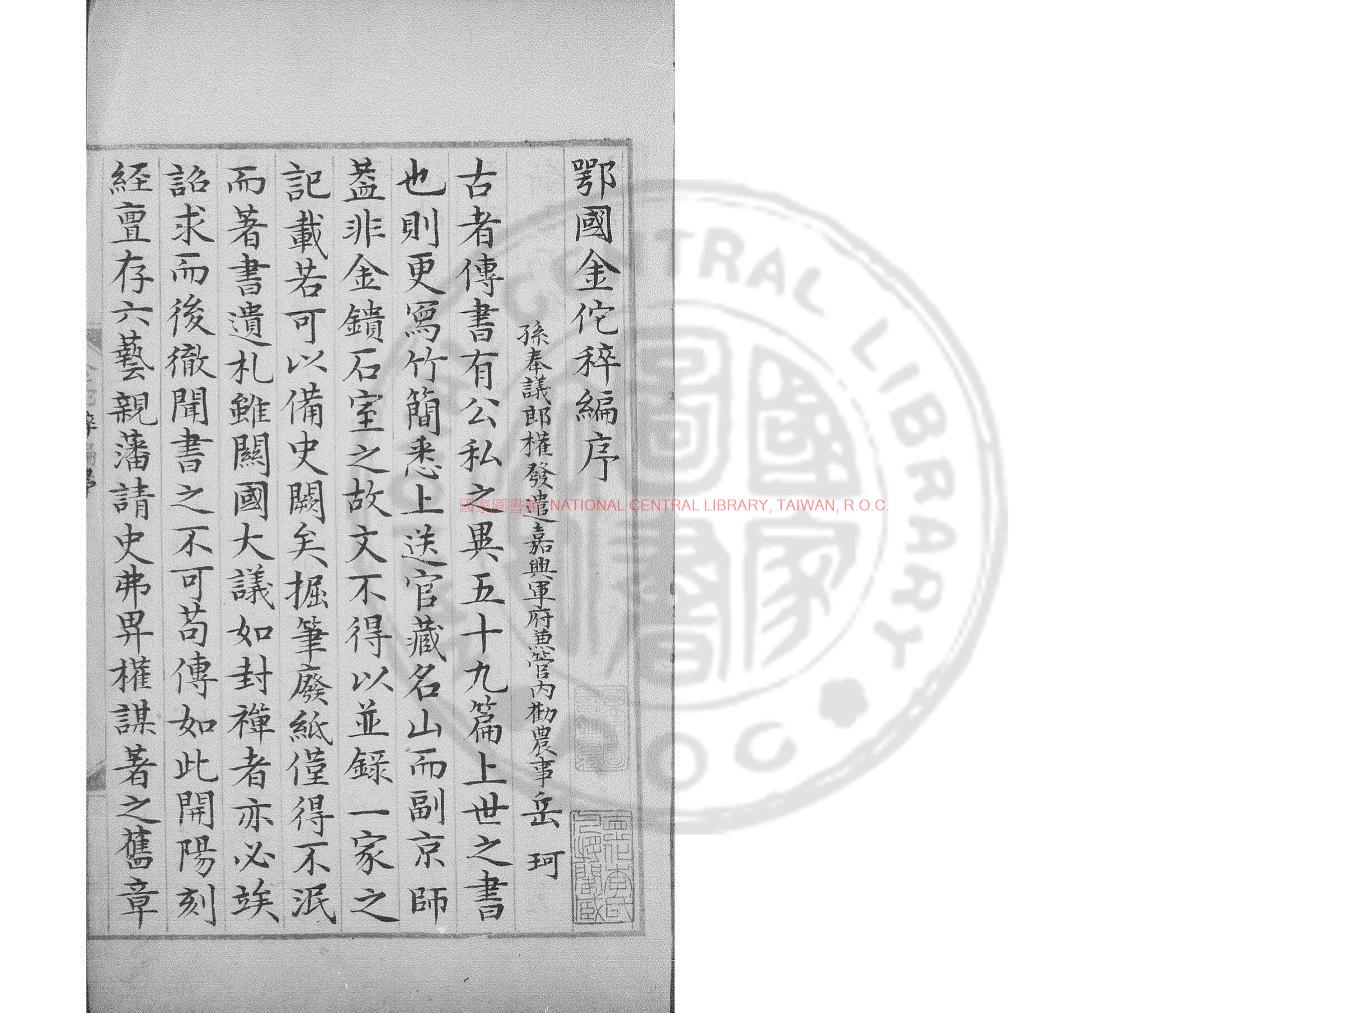 鄂國金佗稡編序
孫奉議郎權發遣嘉興軍府兼管內勸農事岳珂
古者傳書有公私之異五十九篇上世之書
也則更寫竹簡悉上送官藏名山而副京師
葢非金鐀石室之故文不得以並錄一家之
記載若可以備史闕矣掘筆廢紙僅得不泯
而著書遺札雖關國大議如封禪者亦必竢
詔求而後徹聞書之不可苟傳如此開陽刻
経亶存六藝親藩請史弗畀權謀著之舊章
國家圖書館 NATIONAL CENTRAL LIBRARY, TAIWAN, R.O.C.
CENTRAL LIBRARY
R.O.C.